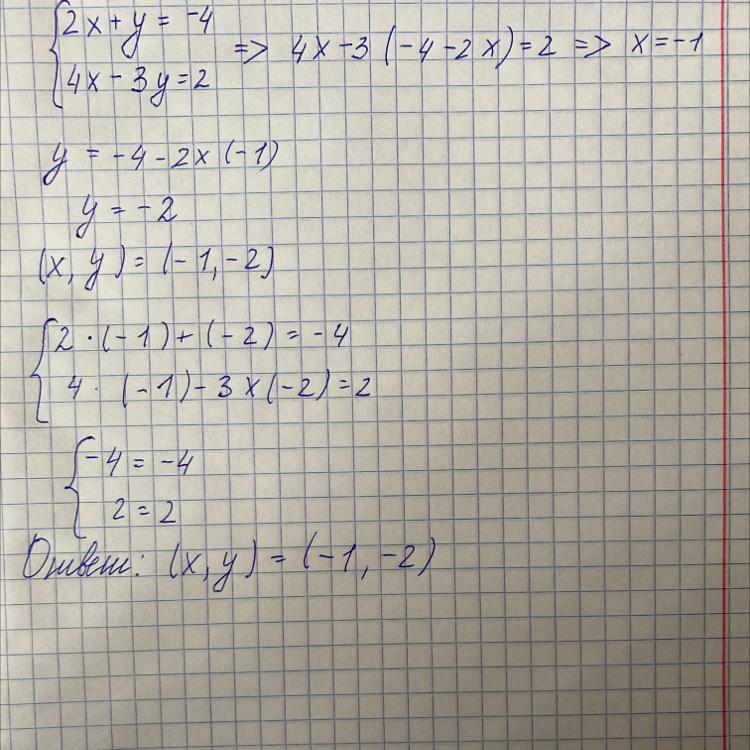 {2x + y = -4
4x - 3y = 2 => 4x - 3(-4 - 2x) = 2 => x = -1
y = -4 - 2x(-1)
y = -2
(x, y) = (-1, -2)
{2 · (-1) + (-2) = -4
4 · (-1) - 3x(-2) = 2
{-4 = -4
2 = 2
Ответ: (x, y) = (-1, -2)